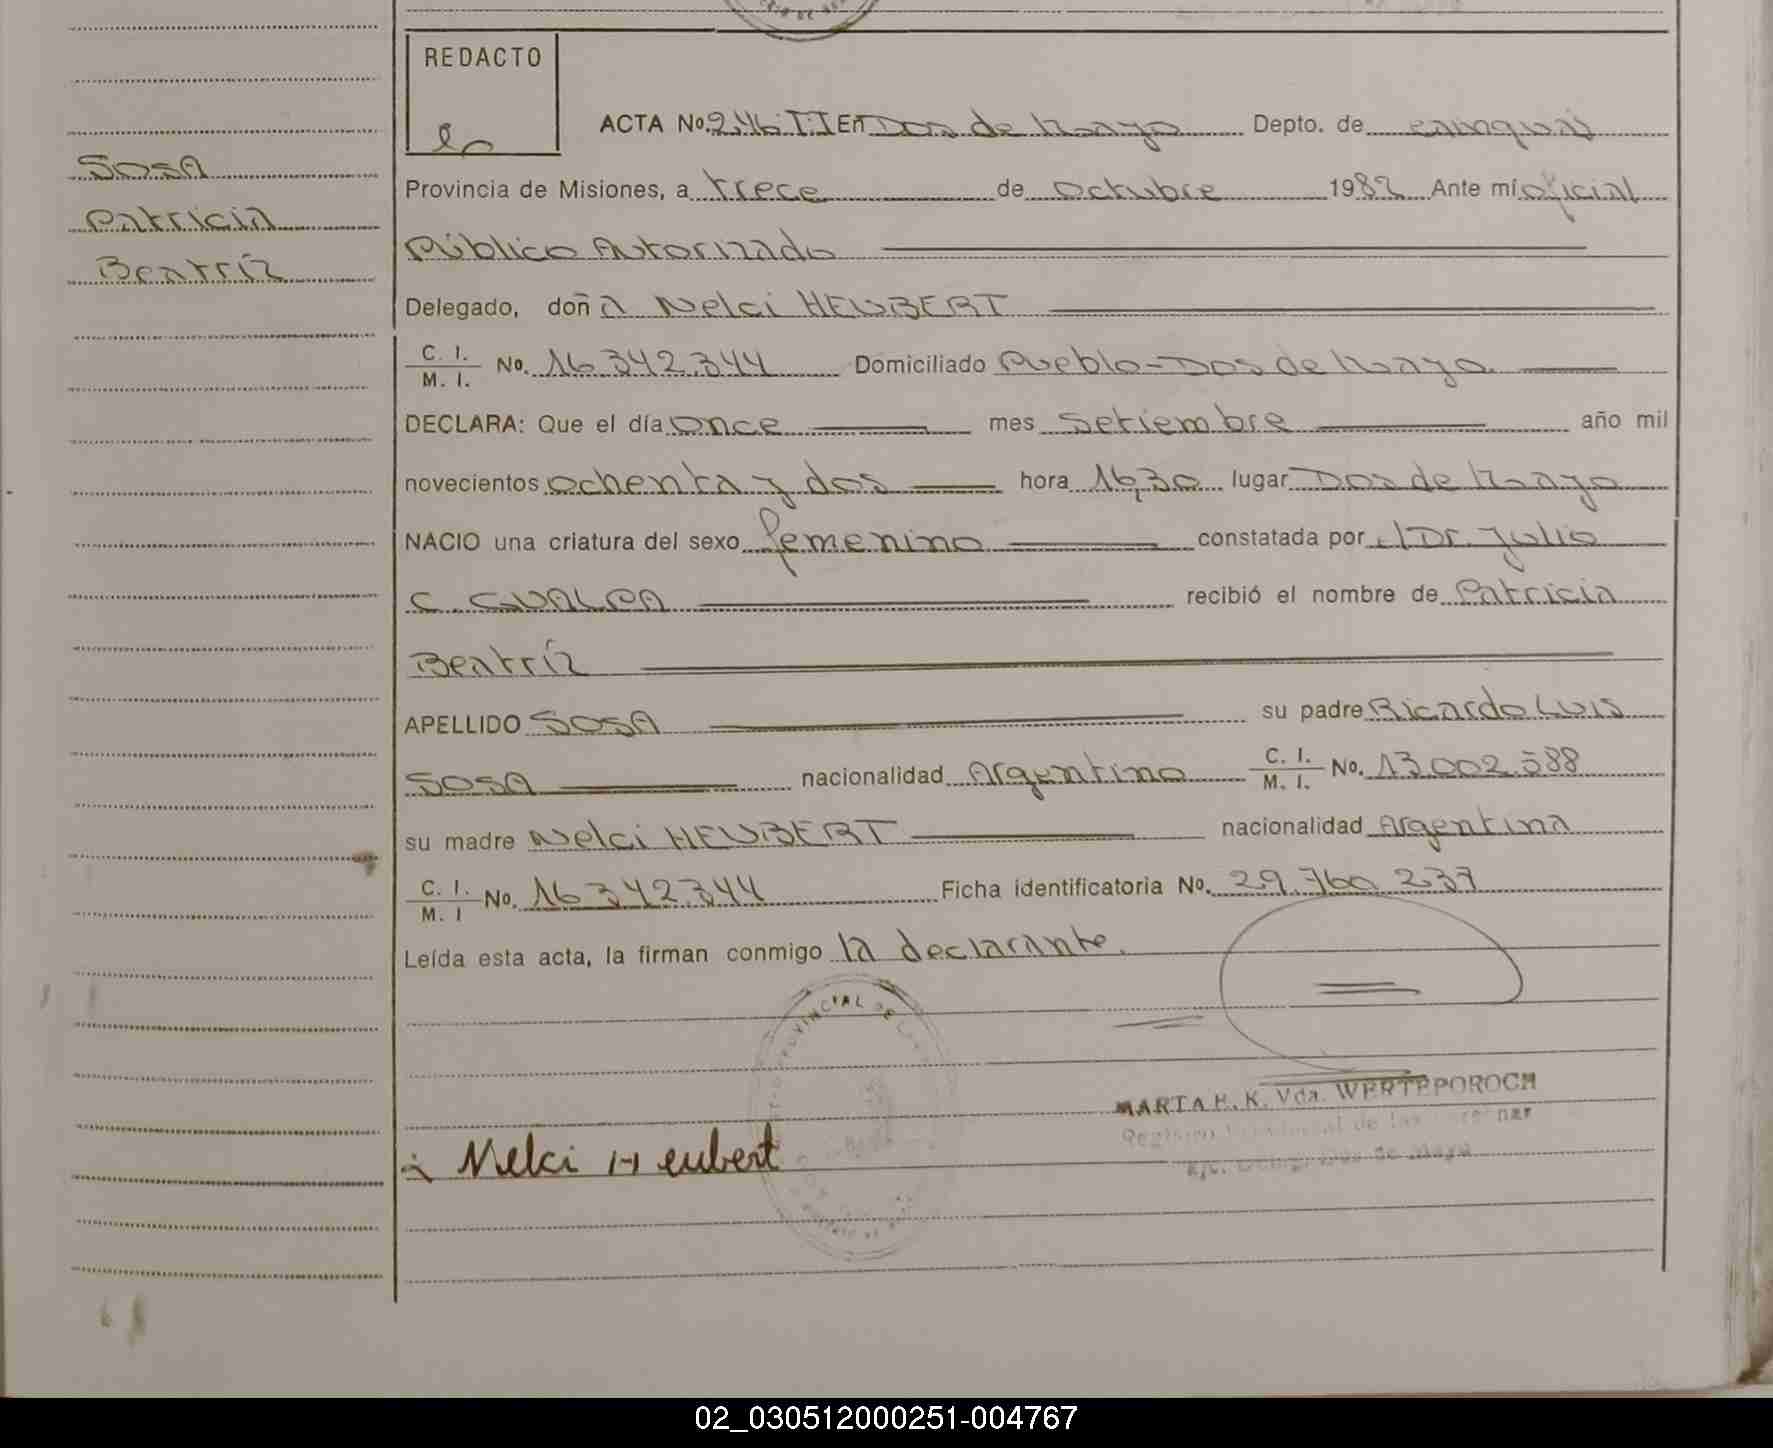 REDACTO
ACTA No. 246 II En Dos de Mayo Depto. de Cainguás
Sosa
Patricia
Beatríz
Provincia de Misiones, a trece de octubre 1982 Ante mí oficial
Público Autorizado
Delegado, doña Nelci HEUBERT
C. I. / M. I. No. 16.342.344 Domiciliado Pueblo-Dos de Mayo
DECLARA: Que el día once mes setiembre año mil
novecientos ochenta y dos hora 16,30 lugar Dos de Mayo
NACIO una criatura del sexo femenino constatada por el Dr. Julio
C. GUALPA recibió el nombre de Patricia
Beatríz
APELLIDO SOSA su padre Ricardo Luis
SOSA nacionalidad Argentino C. I. / M. I. No. 13.002.588
su madre Nelci HEUBERT nacionalidad Argentina
C. I. / M. I No. 16.342.344 Ficha identificatoria No. 29.760.237
Leída esta acta, la firman conmigo la declarante.
PROVINCIAL DE
MARTA H. K. Vda. WERTEPOROCH
Registro Provincial de las Personas
Dos de Mayo
Nelci Heubert
02_030512000251-004767